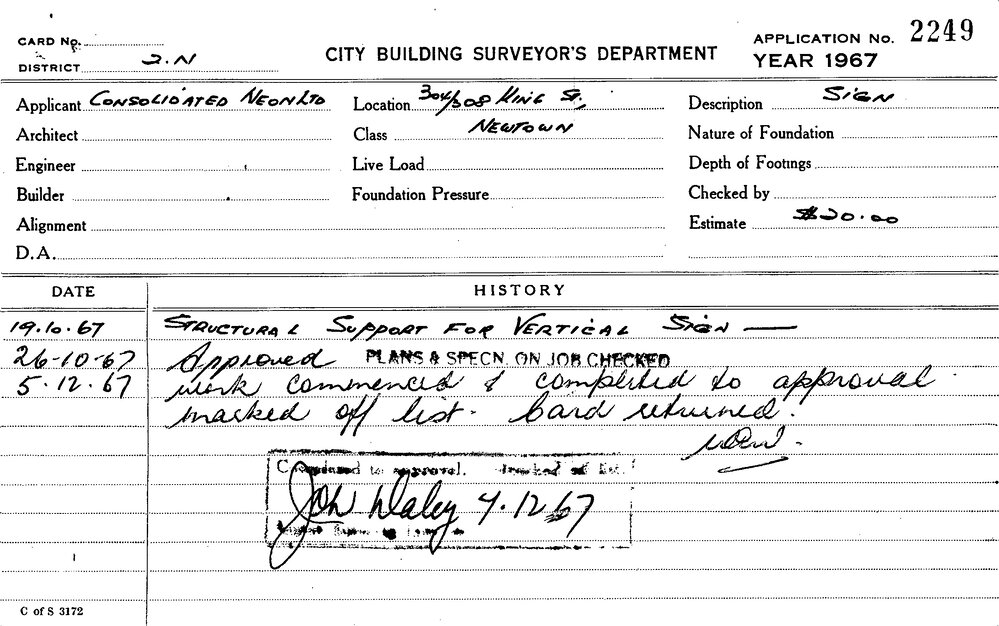 CARD No.
CITY BUILDING SURVEYOR'S DEPARTMENT
APPLICATION No. 2249
DISTRICT 2.N
YEAR 1967
Applicant CONSOLIDATED NEON LTD
Location 304/308 KING ST,
Description SIGN
Architect
Class NEWTOWN
Nature of Foundation
Engineer
Live Load
Depth of Footings
Builder
Foundation Pressure
Checked by
Alignment
Estimate $20.00
D.A.
DATE HISTORY
19.10.67 STRUCTURAL SUPPORT FOR VERTICAL SIGN —
26-10-67 Approved PLANS & SPECN. ON JOB CHECKED
5.12.67 work commenced & completed to approval
marked off list. Card returned.
Completed to approval. Marked off list.
John Daley 7.12.67
C of S 3172